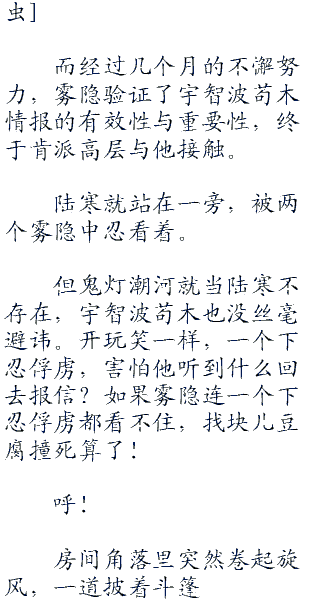 虫]
而经过几个月的不懈努
力，雾隐验证了宇智波苟木
情报的有效性与重要性，终
于肯派高层与他接触。
陆寒就站在一旁，被两
个雾隐中忍看着。
但鬼灯潮河就当陆寒不
存在，宇智波苟木也没丝毫
避讳。开玩笑一样，一个下
忍俘虏，害怕他听到什么回
去报信？如果雾隐连一个下
忍俘虏都看不住，找块儿豆
腐撞死算了！
呼！
房间角落里突然卷起旋
风，一道披着斗篷